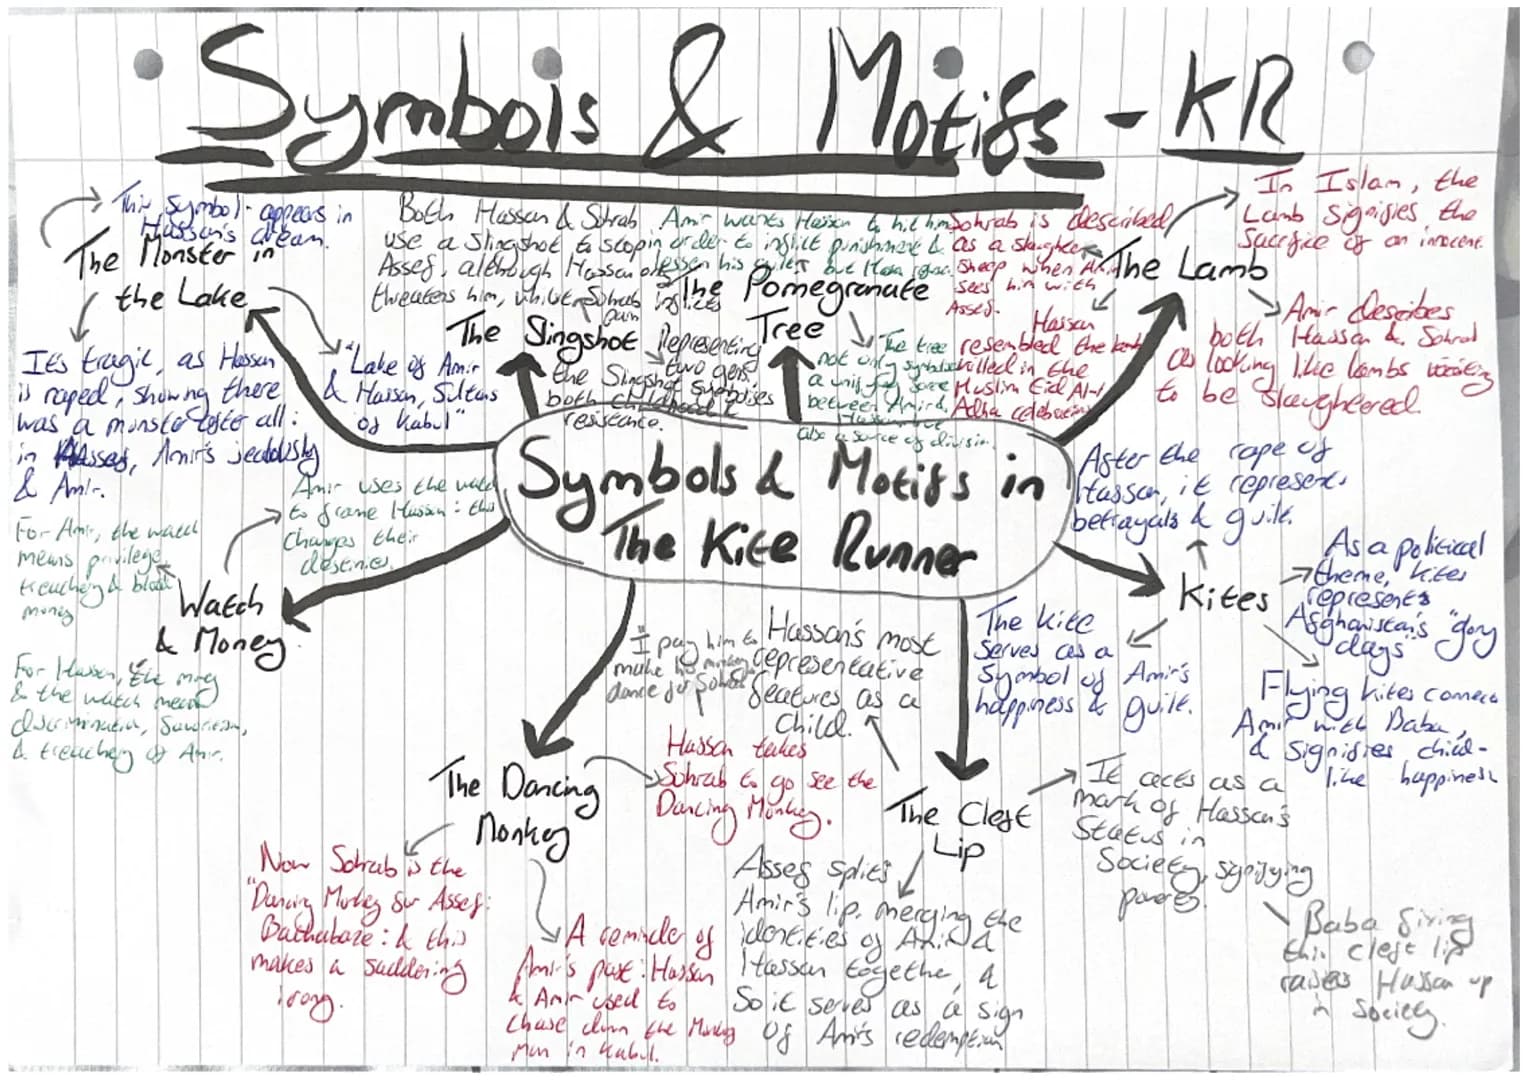 Symbols & Motifs - KR
This symbol appears in
Hassan's dream.
The Monster in
the Lake
It's tragic, as Hassan
is raped, showing there
was a monster after all:
in Assef, Amir's jealously
& Amir.
"Lake of Amir
& Hassan, Sultans
of Kabul"
Both Hassan & Sohrab
use a slingshot to stop
Assef, although Hassan only
threatens him, whilst Sohrab inflicts
pain
The Slingshot
Representing
two gens,
the Slingshot symbolises
both childhood &
resistance.
Amir wants Hassan to hit him
in order to inflict punishment &
lessen his guilt, but Hassan
The Pomegranate
Tree
The tree
not only symbolises
a unifying force
between Amir &
Hassan but
also a source of division.
Sohrab is described
as a slaughter
sheep when Amir
sees him with
Assef.
Hassan
resembled the lamb
killed in the
Muslim Eid Al-
Adha celebrations
The Lamb
In Islam, the
Lamb signifies the
sacrifice of an innocent
Amir describes
both Hassan & Sohrab
as looking like lambs waiting
to be slaughtered.
Symbols & Motifs in
The Kite Runner
After the rape of
Hassan, it represents
betrayals & guilt.
Kites
As a political
theme, kites
represents
Afghanistan's "glory
days"
The kite
serves as a
symbol of Amir's
happiness & guilt.
Flying kites connects
Amir with Baba,
& signifies child-
like happiness
Amir uses the watch
to frame Hassan: this
changes their
destinies.
For Amir, the watch
means privilege,
treachery & blood
money
Watch
& Money
For Hassan, the money
& the watch mean
discrimination, favoritism,
& treachery of Amir.
"I pay him to
make his monkey
dance for Sohrab"
The Dancing
Monkey
Hassan takes
Sohrab to go see the
Dancing Monkey.
Now Sohrab is the
"Dancing Monkey for Assef:
Bachabaze: & this
makes a saddening
irony.
A reminder of
Amir's past: Hassan
& Amir used to
chase down the Monkey
Man in Kabul.
Hassan's most
representative
features as a
child.
The Cleft
Lip
It acts as a
mark of Hassan's
status in
society, signifying
poverty.
Baba fixing
this cleft lip
raises Hassan up
in society.
Assef splits
Amir's lip, merging the
identities of Amir &
Hassan together, &
so it serves as a sign
of Amir's redemption